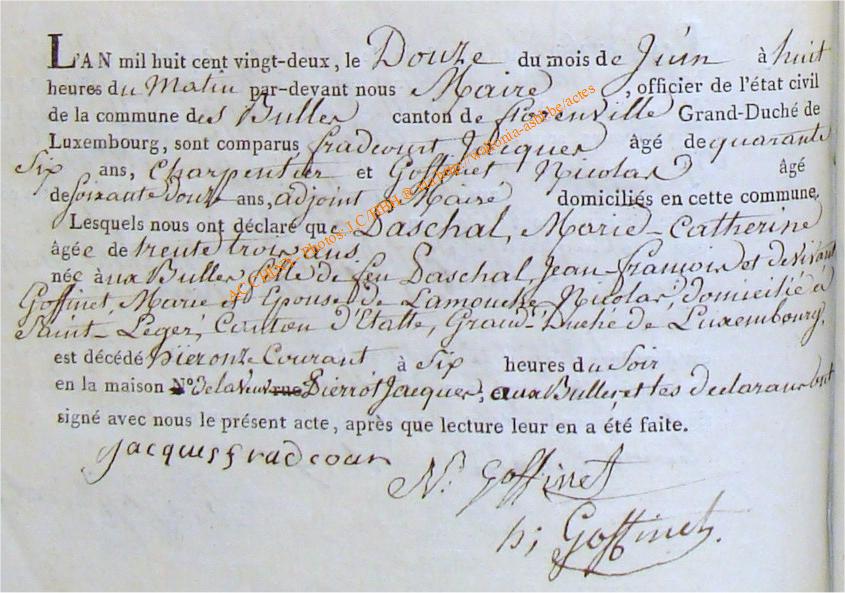 L'AN mil huit cent vingt-deux, le Douze du mois de Juin à huit
heures du Matin par-devant nous Maire, officier de l'état civil
de la commune des Bulles canton de florenville Grand-Duché de
Luxembourg, sont comparus fradcourt Jacques âgé de quarante
Six ans, Charpentier et Goffinet Nicolas âgé
de soixante douze ans, adjoint Maire domiciliés en cette commune,
Lesquels nous ont déclaré que Daschal, Marie-Catherine
âgée de trente trois ans
née aux Bulles fille de feu Daschal, Jean-françois et de vivant
Goffinet, Marie et Epouse de Lamouche, Nicolas, domicilié à
Saint-Leger, Canton d'Etalle, Grand-Duché de Luxembourg,
est décédé hier onze Courant à Six heures du Soir
en la maison N° de la veuve rue Pierrot Jacques, aux Bulles, et les declarans ont
signé avec nous le présent acte, après que lecture leur en a été faite.
Jacques fradcour
N. Goffinet
h; Goffinet.